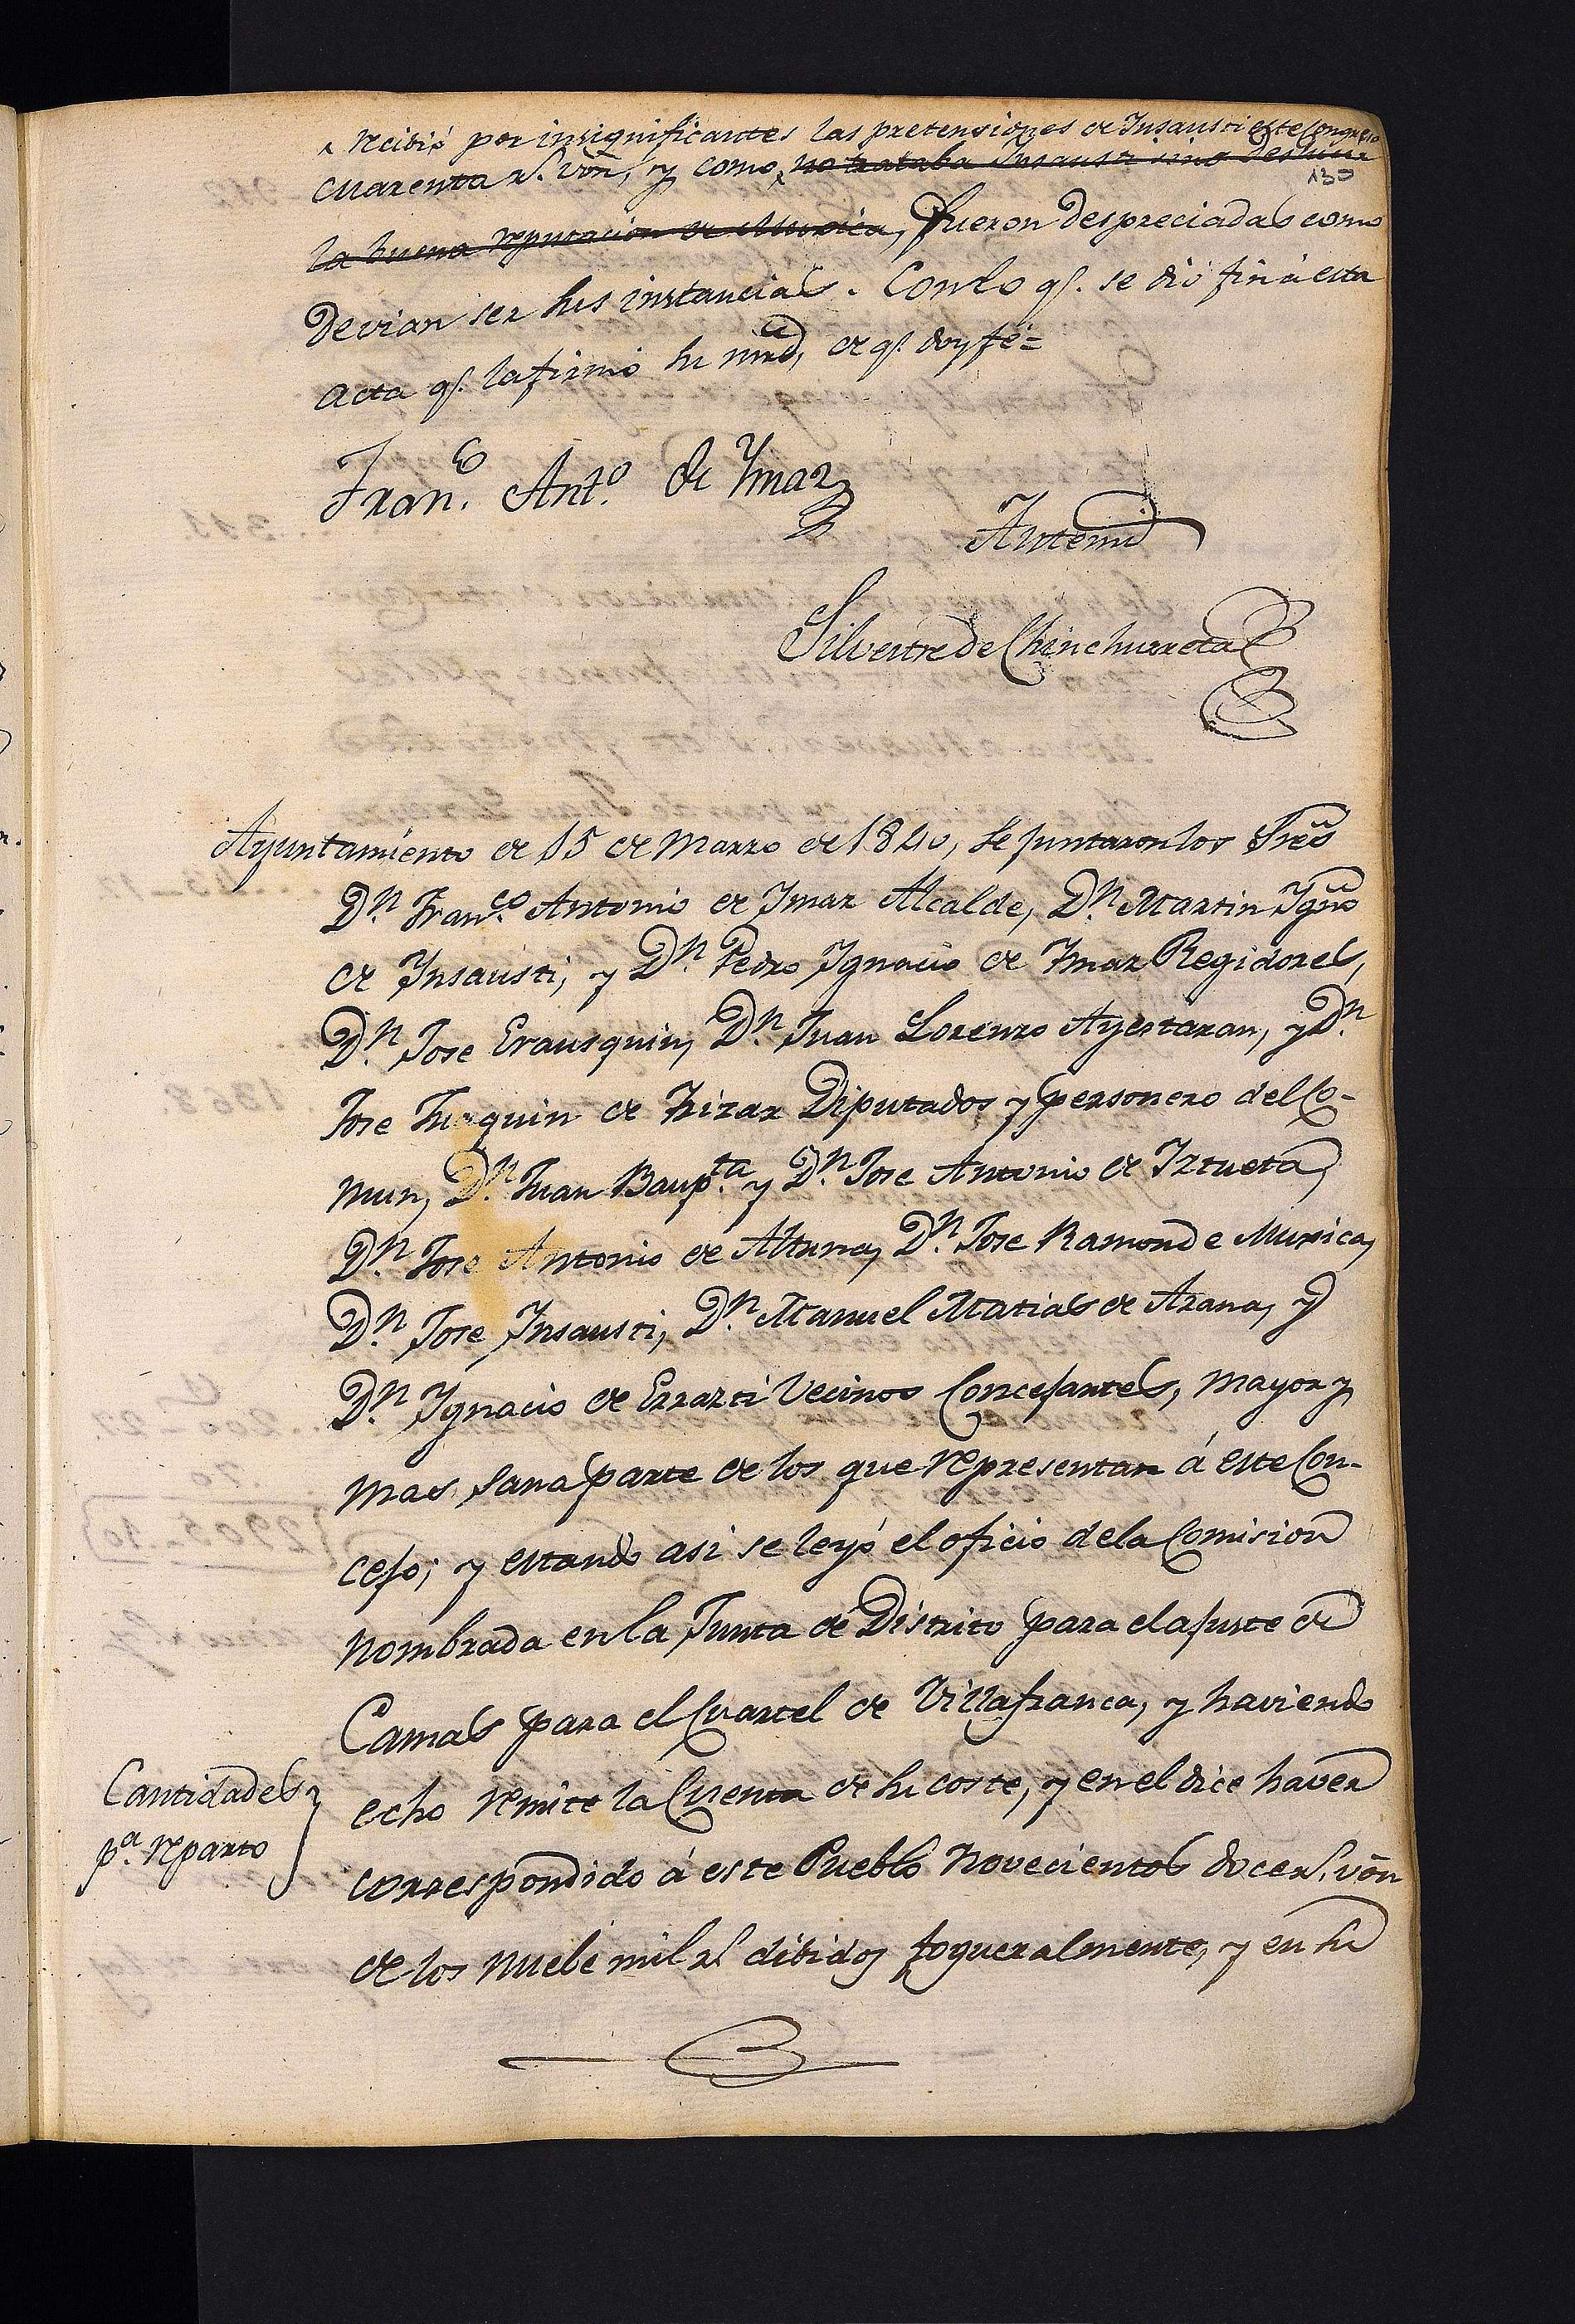 ^ recivió por insignificantes las pretensiones de Insausti este Congreso
130
cuarenta r.s von, y como ^ no trataba Insausti sino desluzir
la buena reputacion de Muxica, fueron despreciadas como
devian ser sus instancias. Con lo q.e se dió fin á esta
acta q.e la firmó su mrd, de q.e doy fé=
Fran.co Ant.o de Ymaz
Antemi
Silvestre de Chinchurreta
Ayuntamiento de 15 de Marzo de 1840, se juntaron los Sres
D.n Fran.co Antonio de Ymaz Alcalde, D.n Martin Ygno
de Insausti, y D.n Pedro Ygnacio de Ymaz Regidores,
D.n Jose Erausquin, D.n Juan Lorenzo Ayestaran, y D.n
Jose Juaquin de Irizar Diputados y personero del Co-
mun, D.n Juan Baup.ta y D.n Jose Antonio de Iztueta,
D.n Jose Antonio de Altuna, D.n Jose Ramon de Muxica,
D.n Jose Insausti, D.n Manuel Matias de Arana, y
D.n Ygnacio de Errazti Vecinos Concejantes, mayor y
mas sana parte de los que representan á este Con-
cejo; y estando asi se leyó el oficio de la Comision
nombrada en la Junta de Distrito para el ajuste de
Camas para el Cuartel de Villafranca, y haviendo
Cantidades
p.a reparto
echo remite la Cuenta de su coste, y en el dice haver
correspondido á este Pueblo novecientos doce r.s von
de los nuebe mil r.s dibidos fogueralmente, y en su